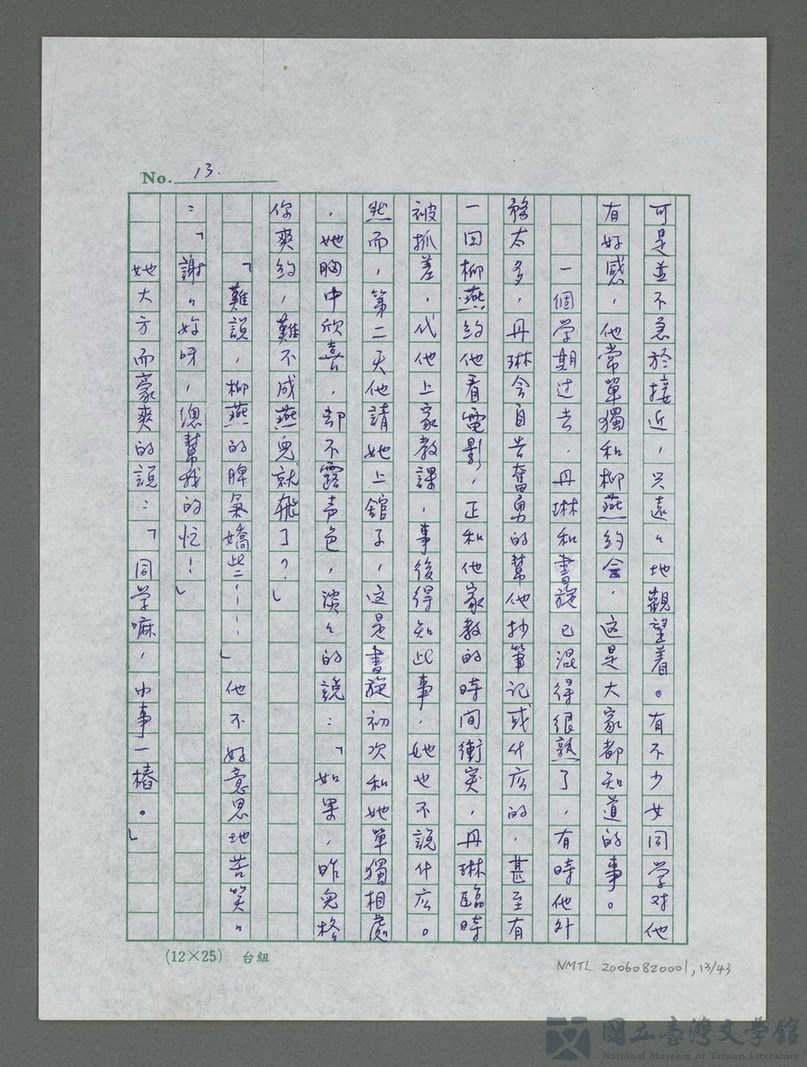 No. 13.
可是並不急於接近，只遠々地觀望着。有不少女同学对他
有好感，他常單獨和柳燕約会，這是大家都知道的事。
一個学期过去，丹琳和書旋已混得很熟了，有時他外
務太多，丹琳会自告奮勇的幫他抄筆记或什広的，甚至有
一回柳燕約他看電影，正和他家教的時间衝突，丹琳臨時
被抓差，代他上家教課，事後得知此事，她也不說什広。
然而，第二天他請她上舘子，这是書旋初次和她單獨相處
，她胸中欣喜，却不露声色，淡々的說：「如果，昨兒
你爽約，難不成燕兒就飛了？」
「難說，柳燕的脾氣嬌些——」他不好意思地苦笑。
：「謝々妳呀，總幫我的忙！」
她大方而豪爽的說：「同学嘛，小事一樁。」
(12×25) 台組
NMTL 20060820001, 13/43
國立臺灣文學館
National Museum of Taiwan Literature